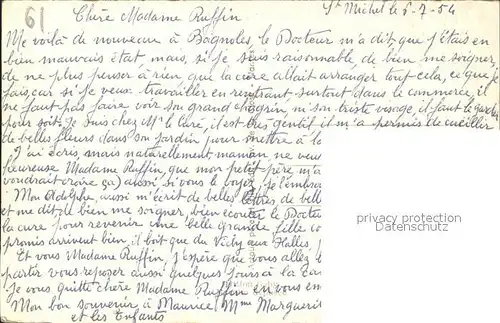 61
St Michel le 6-7-54
Chère Madame Ruffin
Me voilà de nouveau à Bagnoles, le Docteur m'a dit, que j'étais en
bien mauvais état, mais, si je suis raisonnable, de bien me soigner,
de ne plus penser à rien que la cure allait arranger tout cela, ce que je
fais, car si je veux travailler en rentrant surtout dans le commerce, il
ne faut pas faire voir son grand chagrin ni son triste visage, il faut le garder
pour soit. Je suis chez Mr le Curé, il est très gentil il m'a permis de cueillir
de belles fleurs dans son jardin pour mettre à la
J'ai écris, mais naturellement, maman ne veu
heureuse Madame Ruffin, que mon petit père m'a
voudrait croire ça) aussi si vous le voyez, je l'embra
Mon Adolphe, aussi m'écrit de belles lettres de bell
et me dit de bien me soigner, bien écouter le Docteu
la cure pour revenir une belle grande fille co
promis arrivent bien, il boit que du Vichy aux Halles.
Et vous Madame Ruffin, j'espère que vous allez b
partir vous reposer aussi quelques jours à la
Je vous quitte chère Madame Ruffin en vous em
Mon bon souvenir à Maurice, Mme Marguerit
et les Enfants
privacy protection
Datenschutz